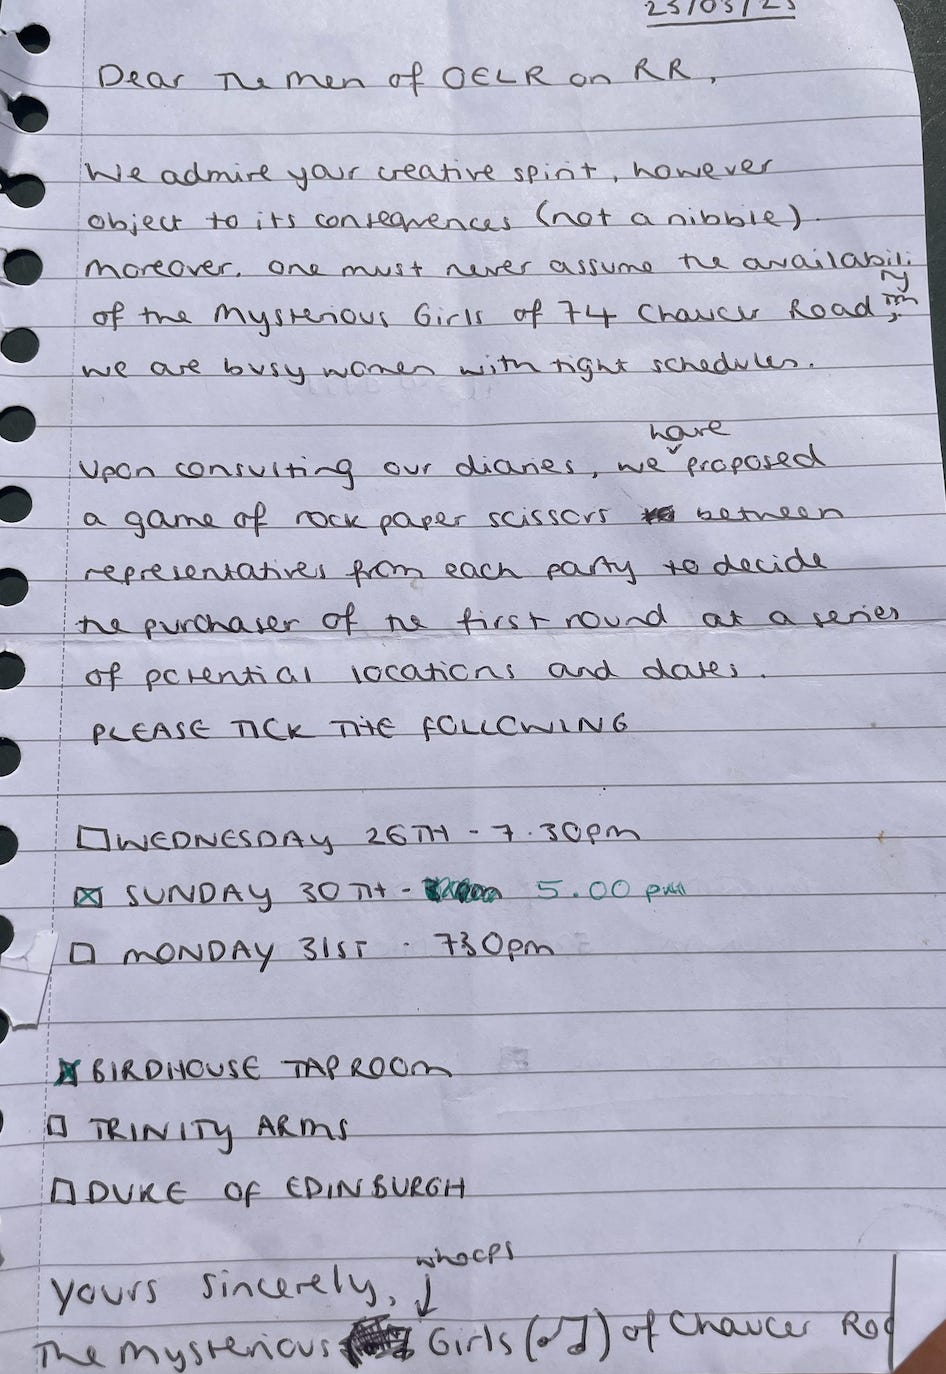 23/03/25
Dear The Men of OELR on RR,
We admire your creative spirit, however
object to its consequences (not a nibble).
Moreover, one must never assume the availabili
ty
of the Mysterious Girls of 74 Chaucer Road;
we are busy women with tight schedules.
have
Upon consulting our diaries, we proposed
a game of rock paper scissors between
representatives from each party to decide
the purchaser of the first round at a series
of potential locations and dates.
PLEASE TICK THE FOLLOWING
☐ WEDNESDAY 26TH - 7.30pm
☒ SUNDAY 30TH - 5.00 pm
☐ MONDAY 31ST - 730pm
☒ BIRDHOUSE TAPROOM
☐ TRINITY ARMS
☐ DUKE OF EDINBURGH
whoops
Yours sincerely,
The Mysterious Girls (♫) of Chaucer Road